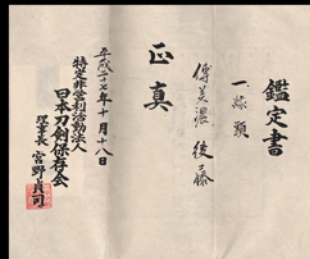 鑑定書
一、縁頭
傳美濃後藤
正真
平成二十七年十月十八日
特定非営利活動法人
日本刀剣保存会
理事長 宮野貞司